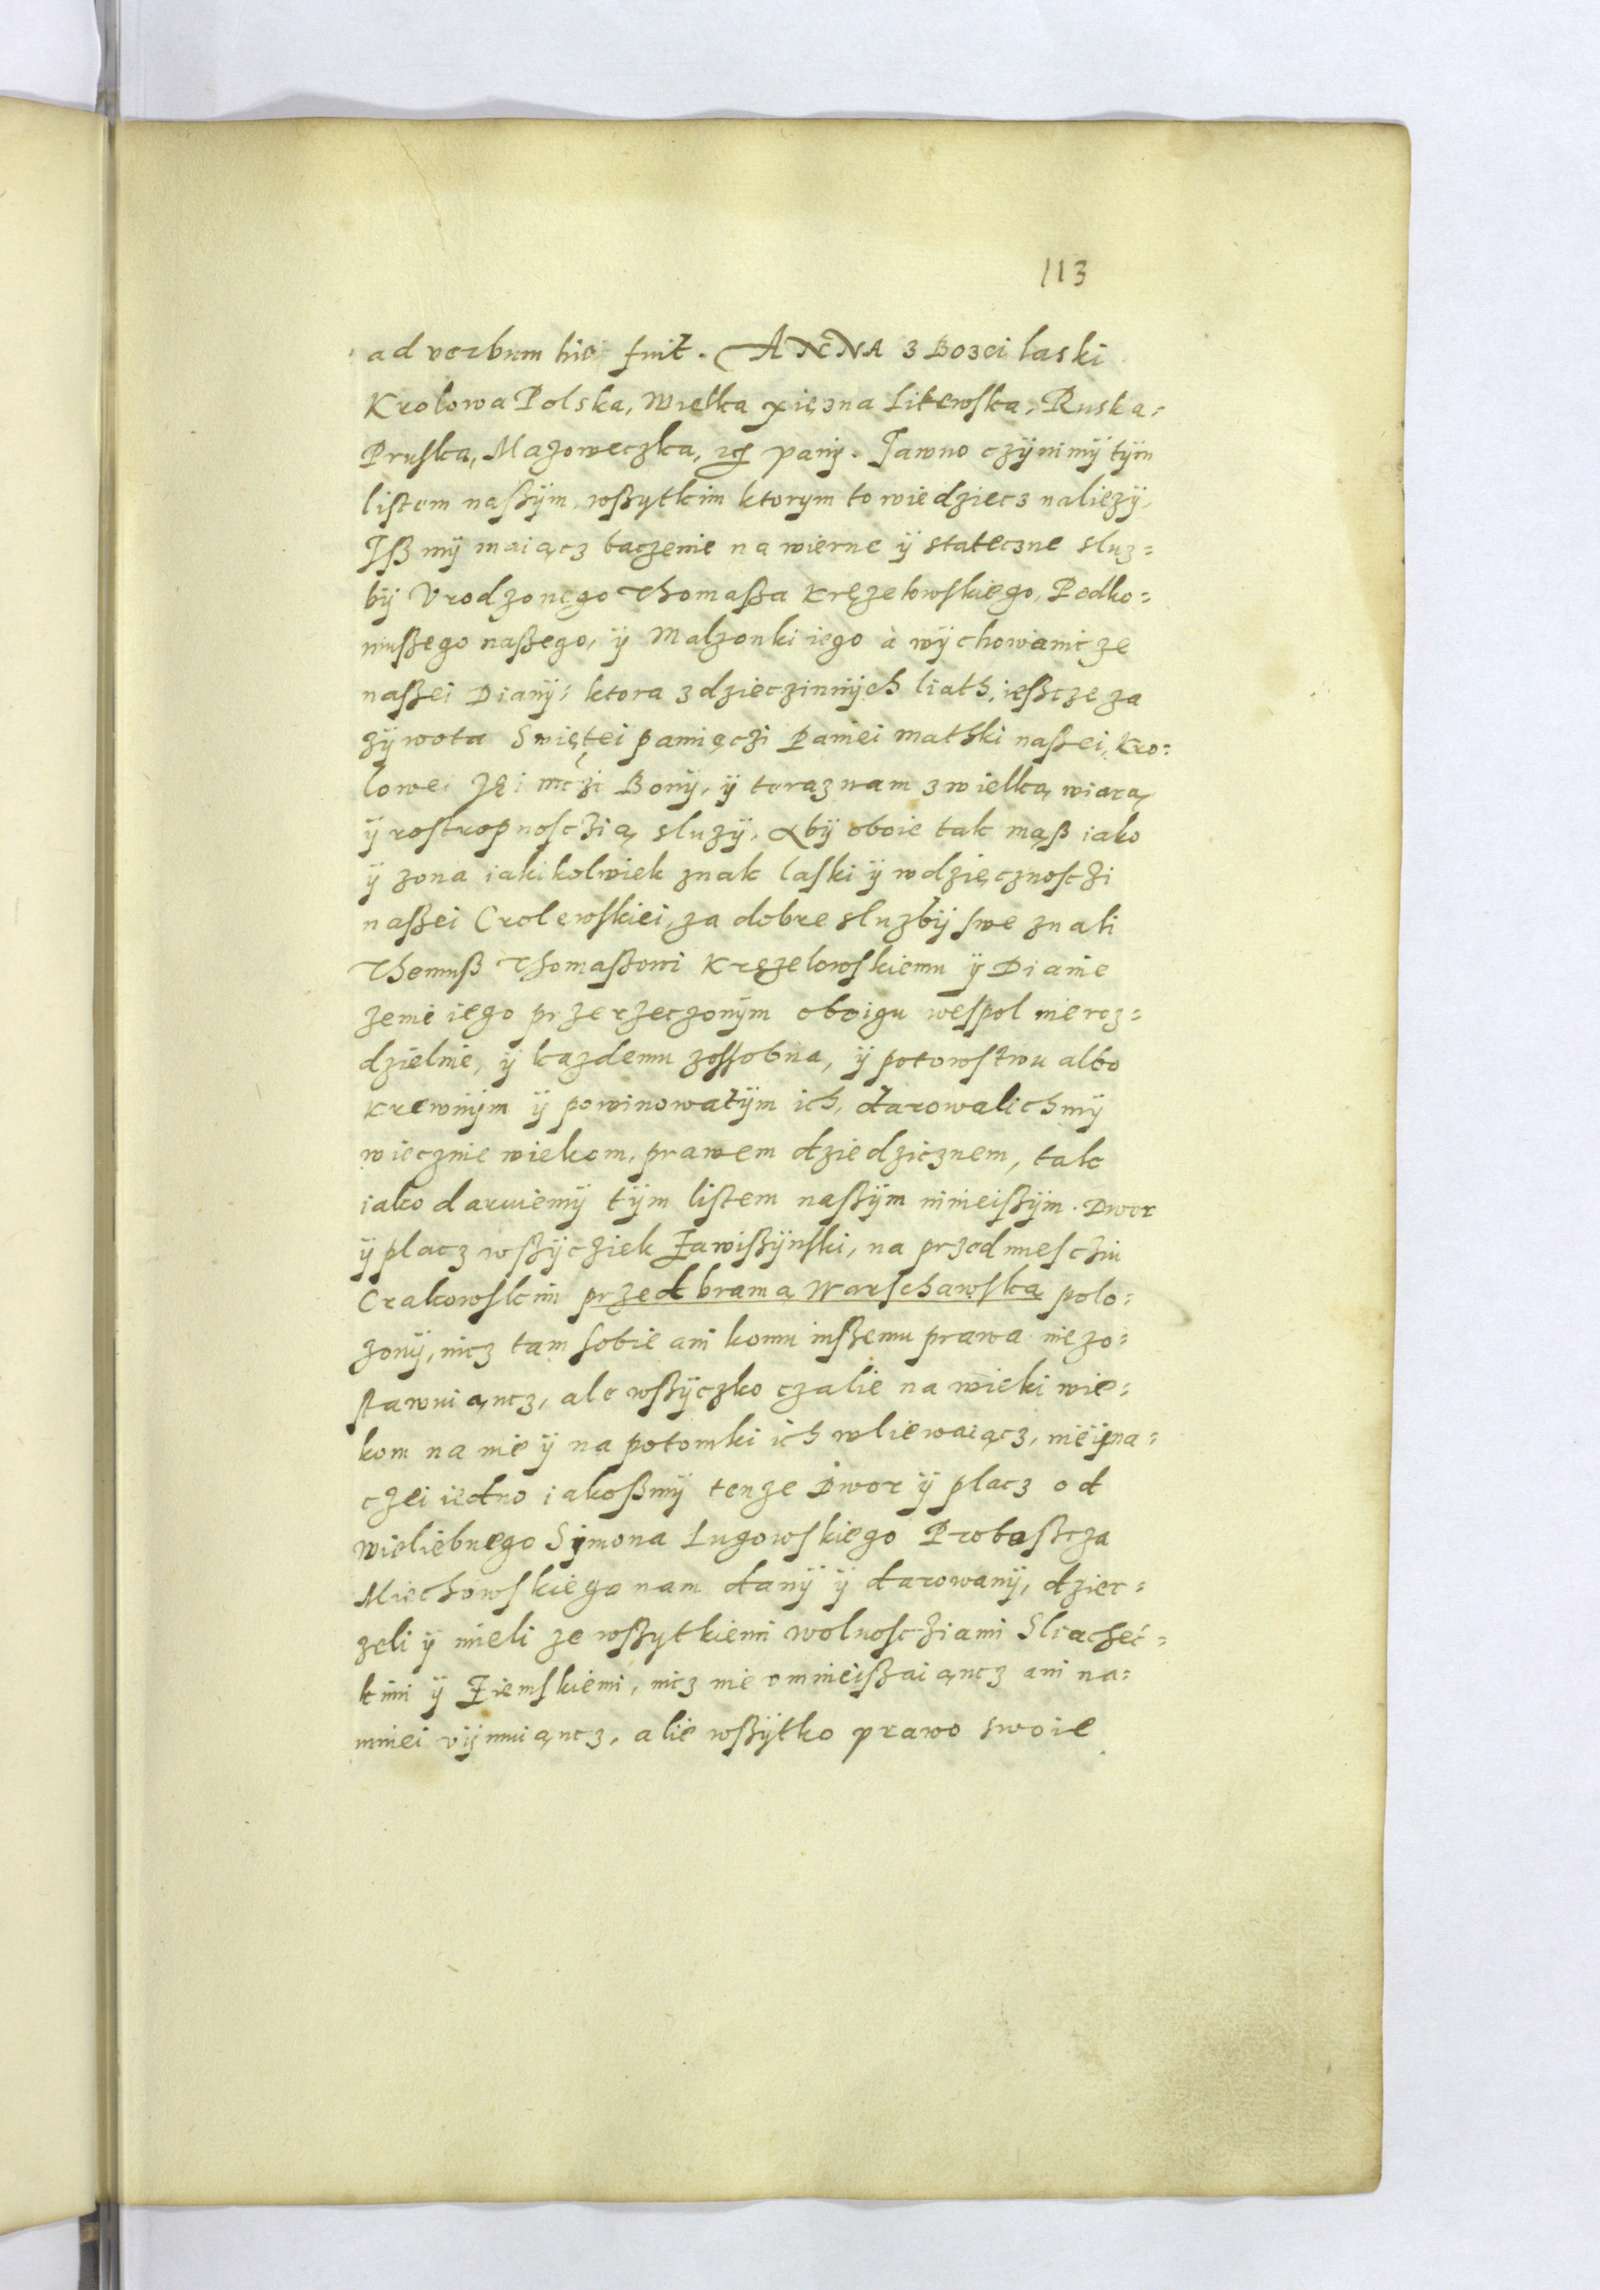 113
ad verbum hic fuit. ANNA z Bozei laski
Krolowa Polska, Wielka xięzna Litewska, Ruska,
Pruska, Mazoweczka, etc pany. Jawno czÿnimÿ tÿm
listem naßÿm, wßytkim ktorym to wiedziecz naliezÿ,
Jß mÿ maiącz baczenie na wierne ÿ stateczne sluz=
bÿ Vrodzonego Thomaßa Kręzelowskiego, Podko=
nußego naßego, ÿ Malzonki iego a wÿchowanicze
naßei Dianÿ: ktora z dzieczinnÿch liath, ießcze za
zÿwota Swiętei pamięczi Paniei mathki naßei, Kro=
lowei Jei mczi Bonÿ, ÿ teraz nam z wielką wiarą
ÿ rostropnosczią sluzÿ. Abÿ oboie tak mąß iako
ÿ zona iakikolwiek znak laski ÿ wdzięcznosczi
naßei Crolewskiei, za dobre sluzbÿ swe znali
Themuß Thomaßowi Kręzelowskiemu ÿ Dianie
zenie iego przerzeczonÿm oboigu wespol nieroz=
dzielnie, ÿ kazdemu zossobna, ÿ potowstwu albo
krewnÿm ÿ powinowatÿm ich, darowalichmÿ
wiecznie wiekom, prawem dziedzicznem, tak
iako daruiemÿ tÿm listem naßÿm ninieißÿm. Dwor
ÿ placz wßÿcziek Zawißÿnski, na przedmiesciu
Crakowskim przed bramą Warschawską polo=
zonÿ, nicz tam sobie ani komu inßemu prawa nie zo=
stawuiąncz, ale wßÿczko czalie na wieki wie=
kom na nie ÿ na potomki ich wliewaiącz, nie ÿna=
czei iedno iakoßmÿ tenze Dwor ÿ placz od
wieliebnego Sÿmona Lugowskiego Probosßcza
Miechowskiego nam danÿ ÿ darowanÿ, dzier=
zeli ÿ mieli ze wßytkiemi wolnosciziami Sliachec=
kimi ÿ Ziemskiemi, nicz nie omnieißaiąncz ani na=
mniei vÿmuiąncz, alie wßÿtko prawo swoie